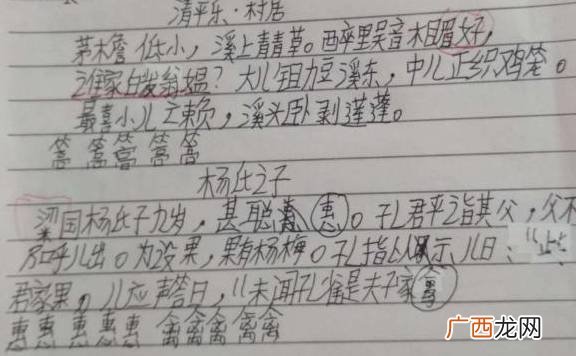 清平乐·村居
茅檐低小，溪上青青草。醉里吴音相媚好，
谁家白发翁媪？大儿锄豆溪东，中儿正织鸡笼。
最喜小儿亡赖，溪头卧剥莲蓬。
篙 篙 篙 篙 篙
杨氏之子
梁国杨氏子九岁，甚聪惠。孔君平诣其父，父不
乃呼儿出。为设果，果有杨梅。孔指以示儿曰：“此
君家果。儿应声答曰，“未闻孔雀是夫子家禽
惠惠惠惠惠 禽禽禽禽禽
广西龙网